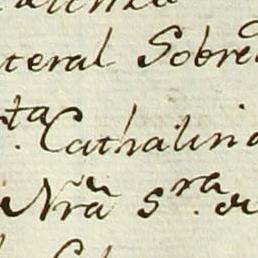 teral Sobre
ta Cathalina
Nrã Sra de